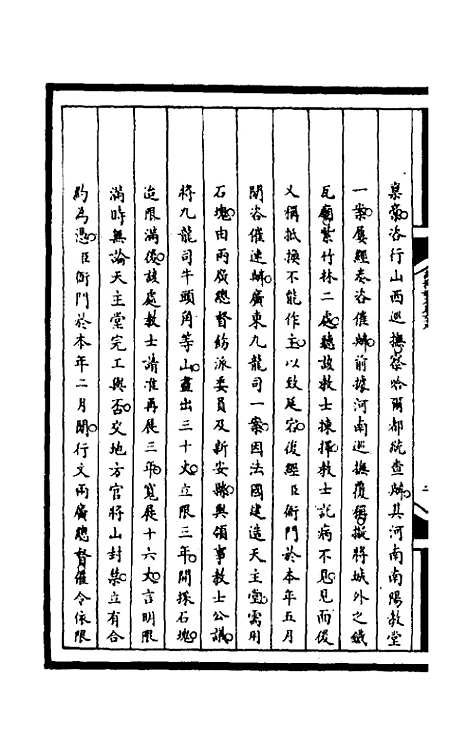 稟齎咨行山西巡撫察哈爾都統查辦其河南南陽教堂
一案屢經奏咨催辦前據河南巡撫覆稱擬將城外之鐵
瓦廟紫竹林二處聽該教士揀擇教士託病不見見而後
又稱抵換不能作主以致延宕復經臣衙門於本年五月
間咨催速辦廣東九龍司一案因法國建造天主堂需用
石塊由兩廣總督飭派委員及新安縣與領事教士公議
將九龍司牛頭角等山畫出三十丈立限三年開採石塊
迨限滿後該處教士請准再展三年寬展十六丈言明限
滿時無論天主堂完工與否交地方官將山封禁立有合
約為憑臣衙門於本年二月間行文兩廣總督催令依限